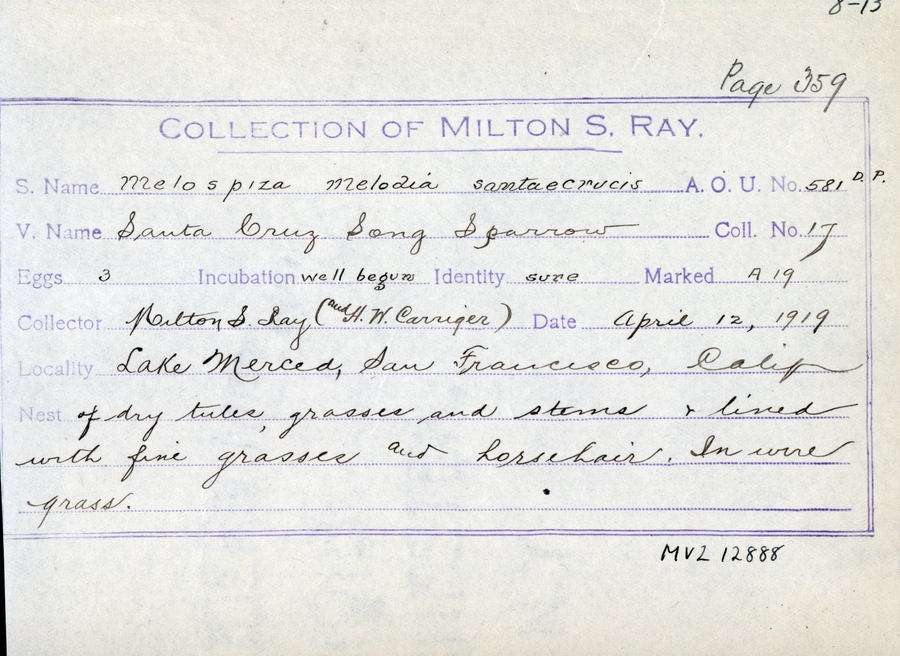 8-13
Page 359
COLLECTION OF MILTON S. RAY.
S. Name Melospiza melodia santaecrucis A. O. U. No. 581 D. P.
V. Name Santa Cruz Song Sparrow Coll. No. 17
Eggs 3 Incubation well begun Identity sure Marked A 19
Collector Milton S. Ray (and H. W. Carriger) Date April 12, 1919
Locality Lake Merced, San Francisco, Calif
Nest of dry tules, grasses and stems & lined
with fine grasses and horsehair. In wire
grass.
MVZ 12888